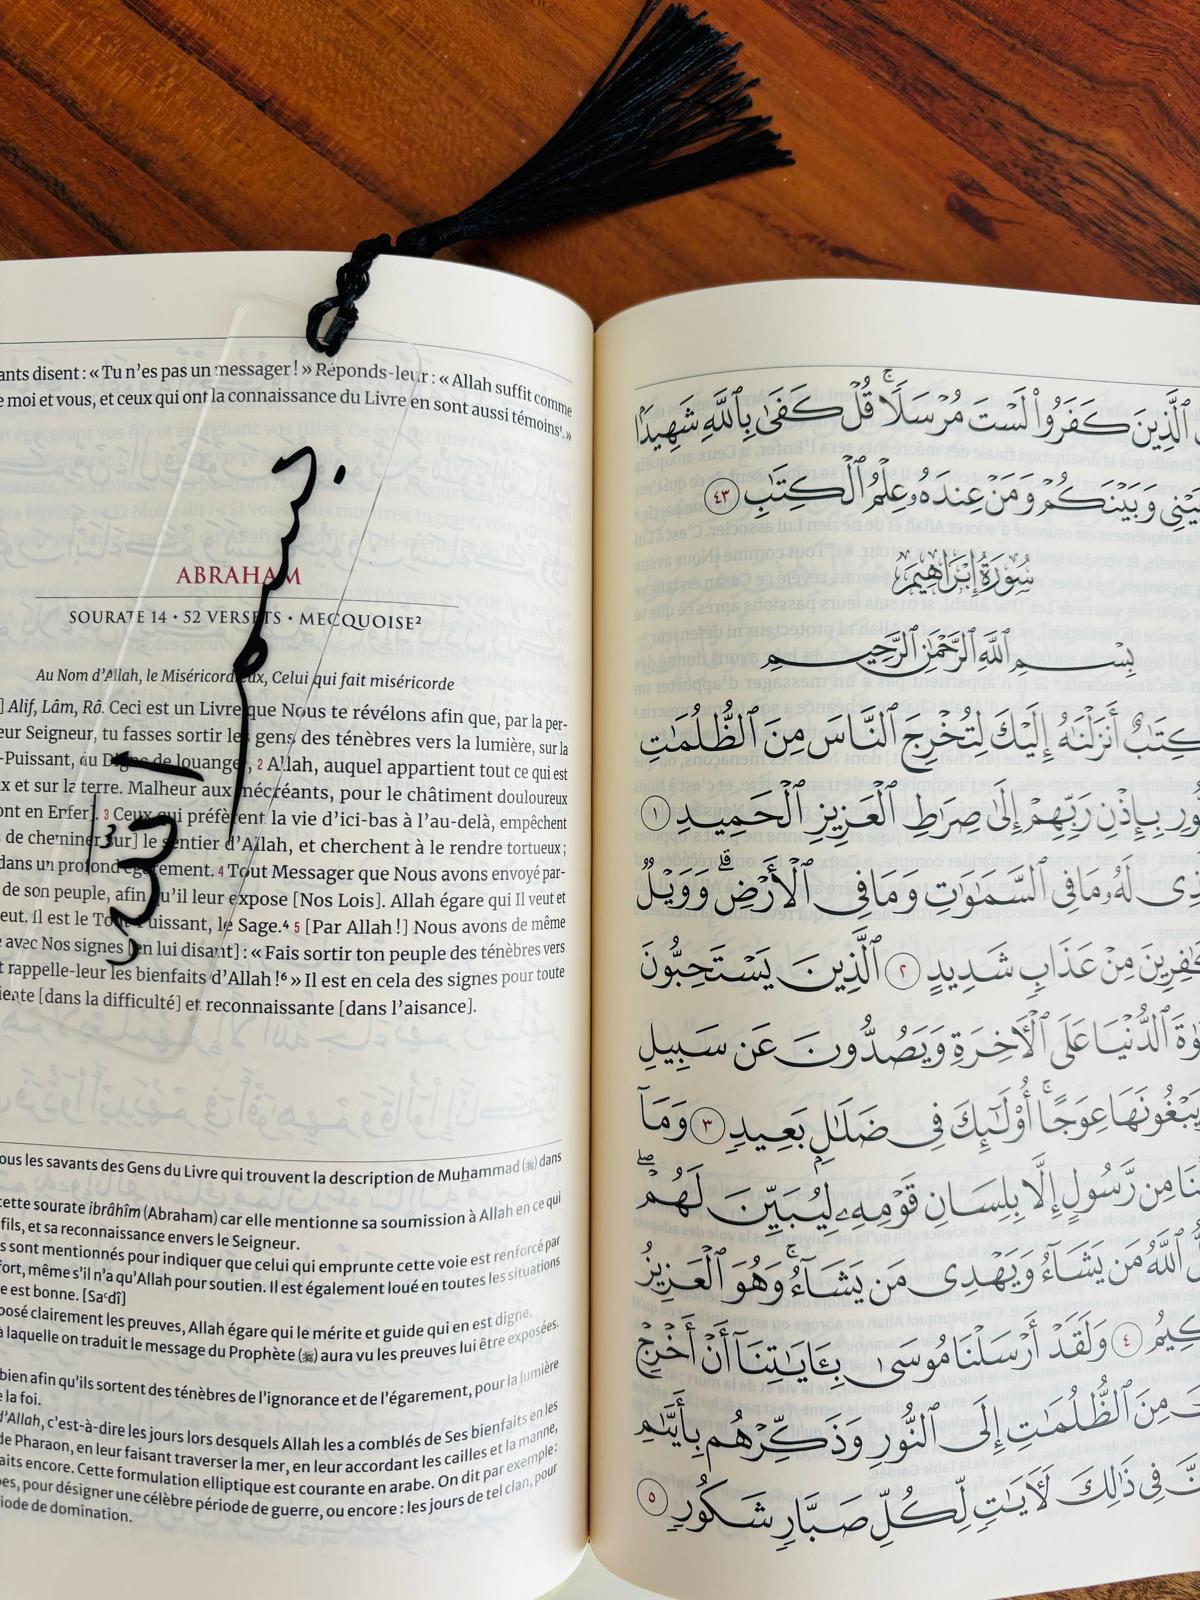 ants disent : « Tu n'es pas un messager ! » Réponds-leur : « Allah suffit comme
e moi et vous, et ceux qui ont la connaissance du Livre en sont aussi témoins¹. »
ABRAHAM
SOURATE 14 • 52 VERSETS • MECQUOISE²
Au Nom d'Allah, le Miséricordieux, Celui qui fait miséricorde
] Alif, Lâm, Râ. Ceci est un Livre que Nous te révélons afin que, par la per-
eur Seigneur, tu fasses sortir les gens des ténèbres vers la lumière, sur la
-Puissant, du Digne de louange, 2 Allah, auquel appartient tout ce qui est
x et sur la terre. Malheur aux mécréants, pour le châtiment douloureux
ont en Enfer]. 3 Ceux qui préfèrent la vie d'ici-bas à l'au-delà, empêchent
s de cheminer sur] le sentier d'Allah, et cherchent à le rendre tortueux ;
dans un profond égarement. 4 Tout Messager que Nous avons envoyé par-
de son peuple, afin qu'il leur expose [Nos Lois]. Allah égare qui Il veut et
eut. Il est le Tout Puissant, le Sage.⁴ 5 [Par Allah !] Nous avons de même
e avec Nos signes [en lui disant] : « Fais sortir ton peuple des ténèbres vers
t rappelle-leur les bienfaits d'Allah !⁶ » Il est en cela des signes pour toute
iente [dans la difficulté] et reconnaissante [dans l'aisance].
ous les savants des Gens du Livre qui trouvent la description de Muhammad (ﷺ) dans
cette sourate ibrâhîm (Abraham) car elle mentionne sa soumission à Allah en ce qui
fils, et sa reconnaissance envers le Seigneur.
s sont mentionnés pour indiquer que celui qui emprunte cette voie est renforcé par
fort, même s'il n'a qu'Allah pour soutien. Il est également loué en toutes les situations
e est bonne. [Saᶜdî]
posé clairement les preuves, Allah égare qui le mérite et guide qui en est digne.
à laquelle on traduit le message du Prophète (ﷺ) aura vu les preuves lui être exposées.
bien afin qu'ils sortent des ténèbres de l'ignorance et de l'égarement, pour la lumière
e la foi.
d'Allah, c'est-à-dire les jours lors desquels Allah les a comblés de Ses bienfaits en les
de Pharaon, en leur faisant traverser la mer, en leur accordant les cailles et la manne,
aits encore. Cette formulation elliptique est courante en arabe. On dit par exemple :
es, pour désigner une célèbre période de guerre, ou encore : les jours de tel clan, pour
iode de domination.
ٱلَّذِينَ كَفَرُوا۟ لَسْتَ مُرْسَلًا ۚ قُلْ كَفَىٰ بِٱللَّهِ شَهِيدًۢا
بَيْنِى وَبَيْنَكُمْ وَمَنْ عِندَهُۥ عِلْمُ ٱلْكِتَٰبِ ٤٣
سُورَةُ إِبْرَاهِيمَ
بِسْمِ ٱللَّهِ ٱلرَّحْمَٰنِ ٱلرَّحِيمِ
كِتَٰبٌ أَنزَلْنَٰهُ إِلَيْكَ لِتُخْرِجَ ٱلنَّاسَ مِنَ ٱلظُّلُمَٰتِ
بِإِذْنِ رَبِّهِمْ إِلَىٰ صِرَٰطِ ٱلْعَزِيزِ ٱلْحَمِيدِ ١
لَهُۥ مَا فِى ٱلسَّمَٰوَٰتِ وَمَا فِى ٱلْأَرْضِ ۗ وَوَيْلٌ
مِنْ عَذَابٍ شَدِيدٍ ٢ ٱلَّذِينَ يَسْتَحِبُّونَ
ٱلدُّنْيَا عَلَى ٱلْءَاخِرَةِ وَيَصُدُّونَ عَن سَبِيلِ
وَيَبْغُونَهَا عِوَجًا ۚ أُو۟لَٰٓئِكَ فِى ضَلَٰلٍۭ بَعِيدٍ ٣ وَمَآ
مِن رَّسُولٍ إِلَّا بِلِسَانِ قَوْمِهِۦ لِيُبَيِّنَ لَهُمْ ۖ
ٱللَّهُ مَن يَشَآءُ وَيَهْدِى مَن يَشَآءُ ۚ وَهُوَ ٱلْعَزِيزُ
٤ وَلَقَدْ أَرْسَلْنَا مُوسَىٰ بِـَٔايَٰتِنَآ أَنْ أَخْرِجْ
مِنَ ٱلظُّلُمَٰتِ إِلَى ٱلنُّورِ وَذَكِّرْهُم بِأَيَّىٰمِ
فِى ذَٰلِكَ لَءَايَٰتٍ لِّكُلِّ صَبَّارٍ شَكُورٍ ٥